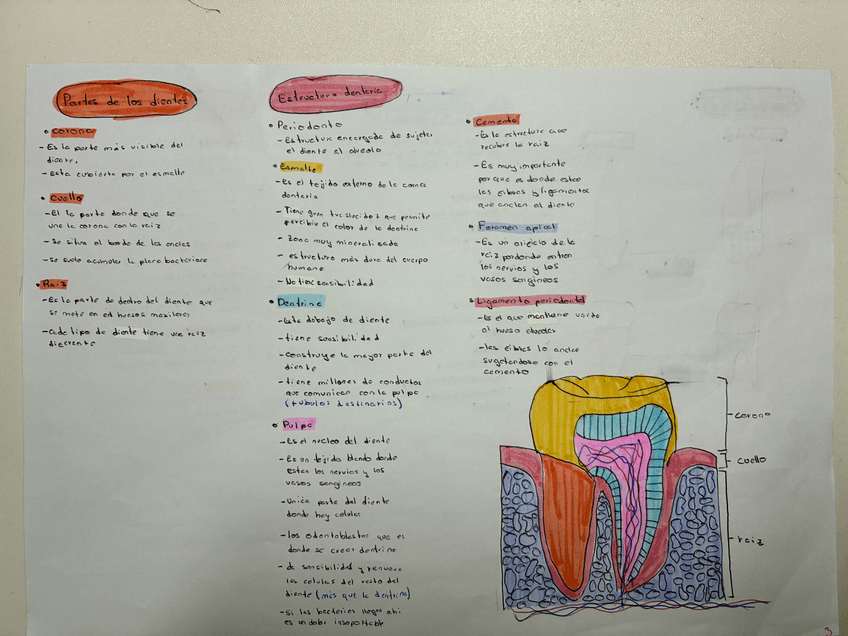 Partes de los dientes
• Corona
- Es la parte más visible del
diente,
- Esta cubierto por el esmalte
• Cuello
- El la parte donde que se
une la corona con la raiz
- Se situa al borde de las encias
- Se suele acumular la placa bacteriana
• Raiz
- Es la parte de dentro del diente que
se mete en huesos maxilares
- Cada tipo de diente tiene una raiz
diferente
Estructura dentaria
• Periodonto
- Estructura encargada de sujetar
el diente al alveolo
• Esmalte
- Es el tejido externo de la corona
dentaria
- Tiene gran traslucidez que permite
percibir el color de la dentina
- Zona muy mineralizada
- estructura más dura del cuerpo
humano
- No tiene sensibilidad
• Dentrina
- Esta debajo de diente
- tiene sensibilidad
- construye la mayor parte del
diente
- tiene millones de conductos
que comunican con la pulpa
(tubulos destinarios)
• Pulpa
- Es el nucleo del diente
- Es un tejido blando donde
estan los nervios y los
vasos sangineos
- Unica parte del diente
donde hay celulas
- los odontoblastos que es
donde se crear dentrina
- da sensibilidad y renueva
las celulas del resto del
diente (más que la dentrina)
- Si las bacterias llegan ahi
es un dolor insoportable
• Cemento
- Es la estructura que
recubre la raiz
- Es muy importante
por que es donde estan
las fibras y ligamentos
que anclan al diente
• Foramen apical
- Es un orificio de la
raiz por donde entran
los nervios y los
vasos sangineos
• Ligamento periodontal
- Es el que mantiene unido
al hueso alveolar
- las fibras lo anclan
sugetandose con el
cemento
corona
cuello
raiz
3